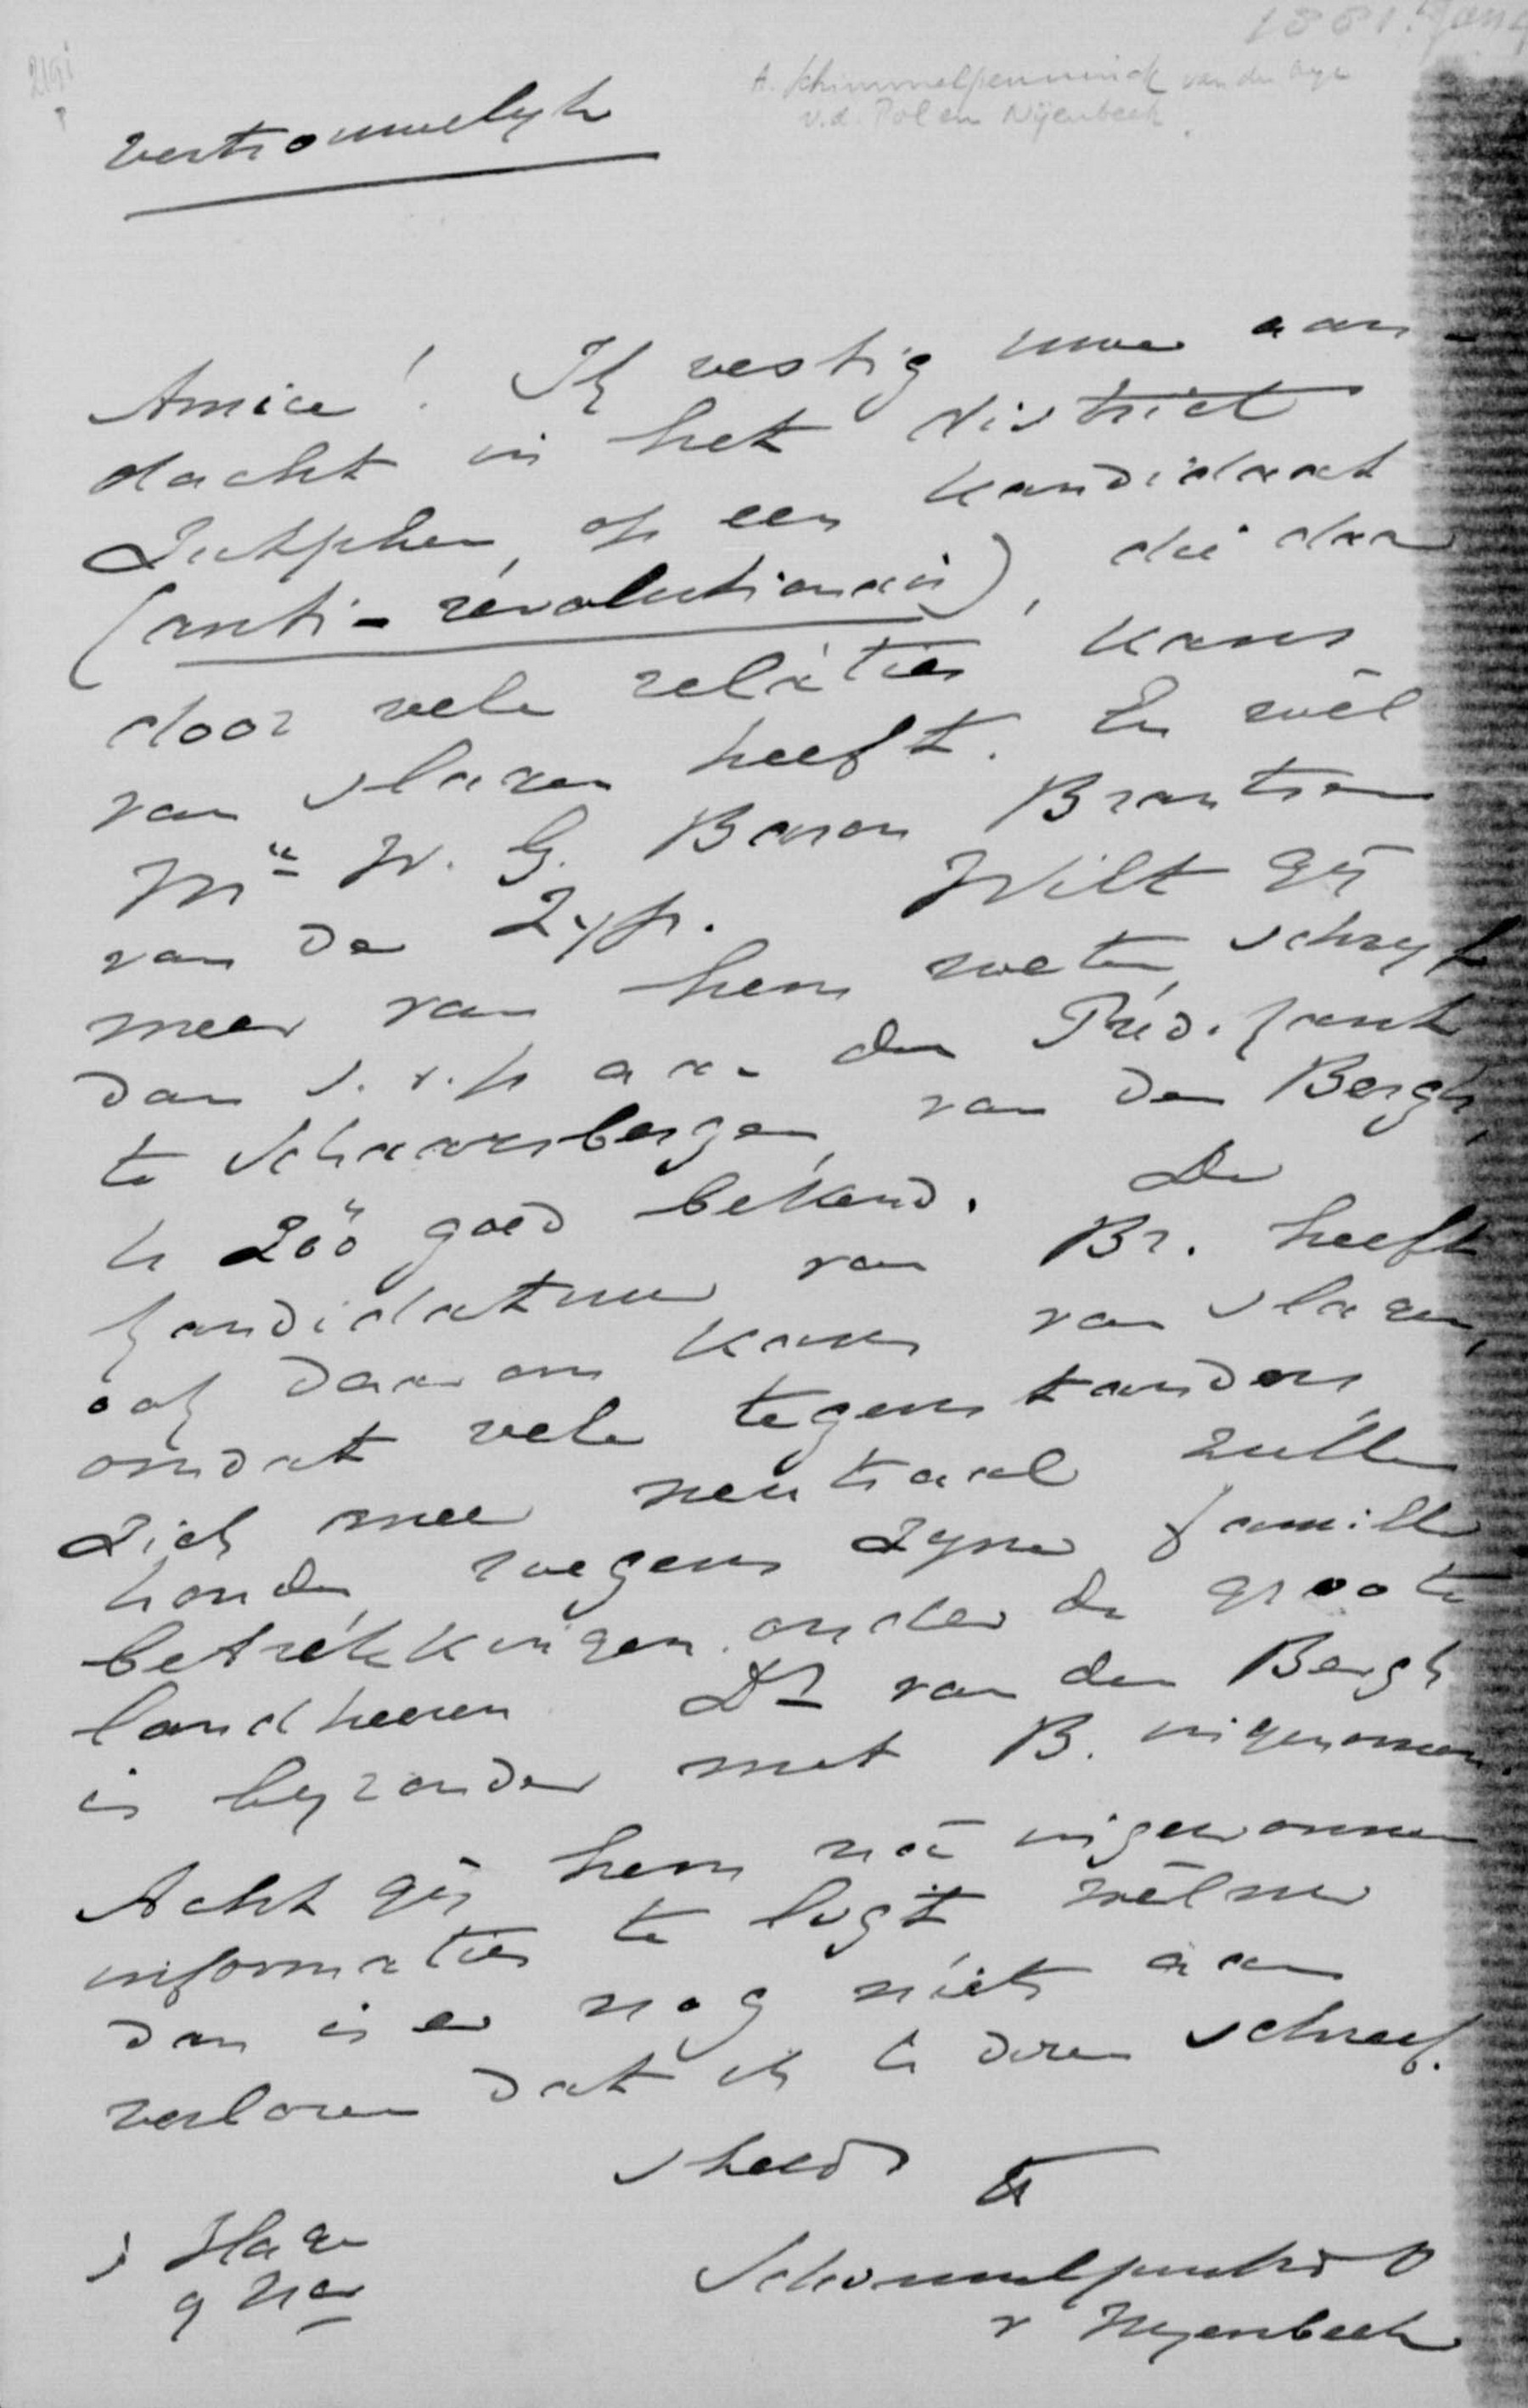 1881. Jan
A. Schimmelpenninck van der Oye
v.d. Pol en Nijenbeek.
vertrouwelyk
Amice! Ik vestig uwe aan-
dacht in het district
Zutphen, op een kandidaat
(anti-revolutionair), die daar
door vele relatien kans
van slagen heeft. En wel
Mr W. G. Baron Brantsen
van de Zyp. Wilt gij
meer van hem weten, schryf
dan s.v.p aan den Predikant
te Schaarsbergen, van den Bergh,
U zoo goed bekend. De
kandidatuur van Br. heeft
ook daarom kans van slagen,
omdat vele tegenstanders
zich meer neutraal zullen
houden wegens zyne familie
betrekkingen onder de groote
landheeren. Dr van den Bergh
is byzonder met B. ingenomen.
Acht gij hem na ingewonnen
informatien te ligt welnu
dan is er nog niets aan
verloren dat ik U dezen schreef.
steeds
s Hage
9
Schimmelpenninck v O
v Nyenbeek